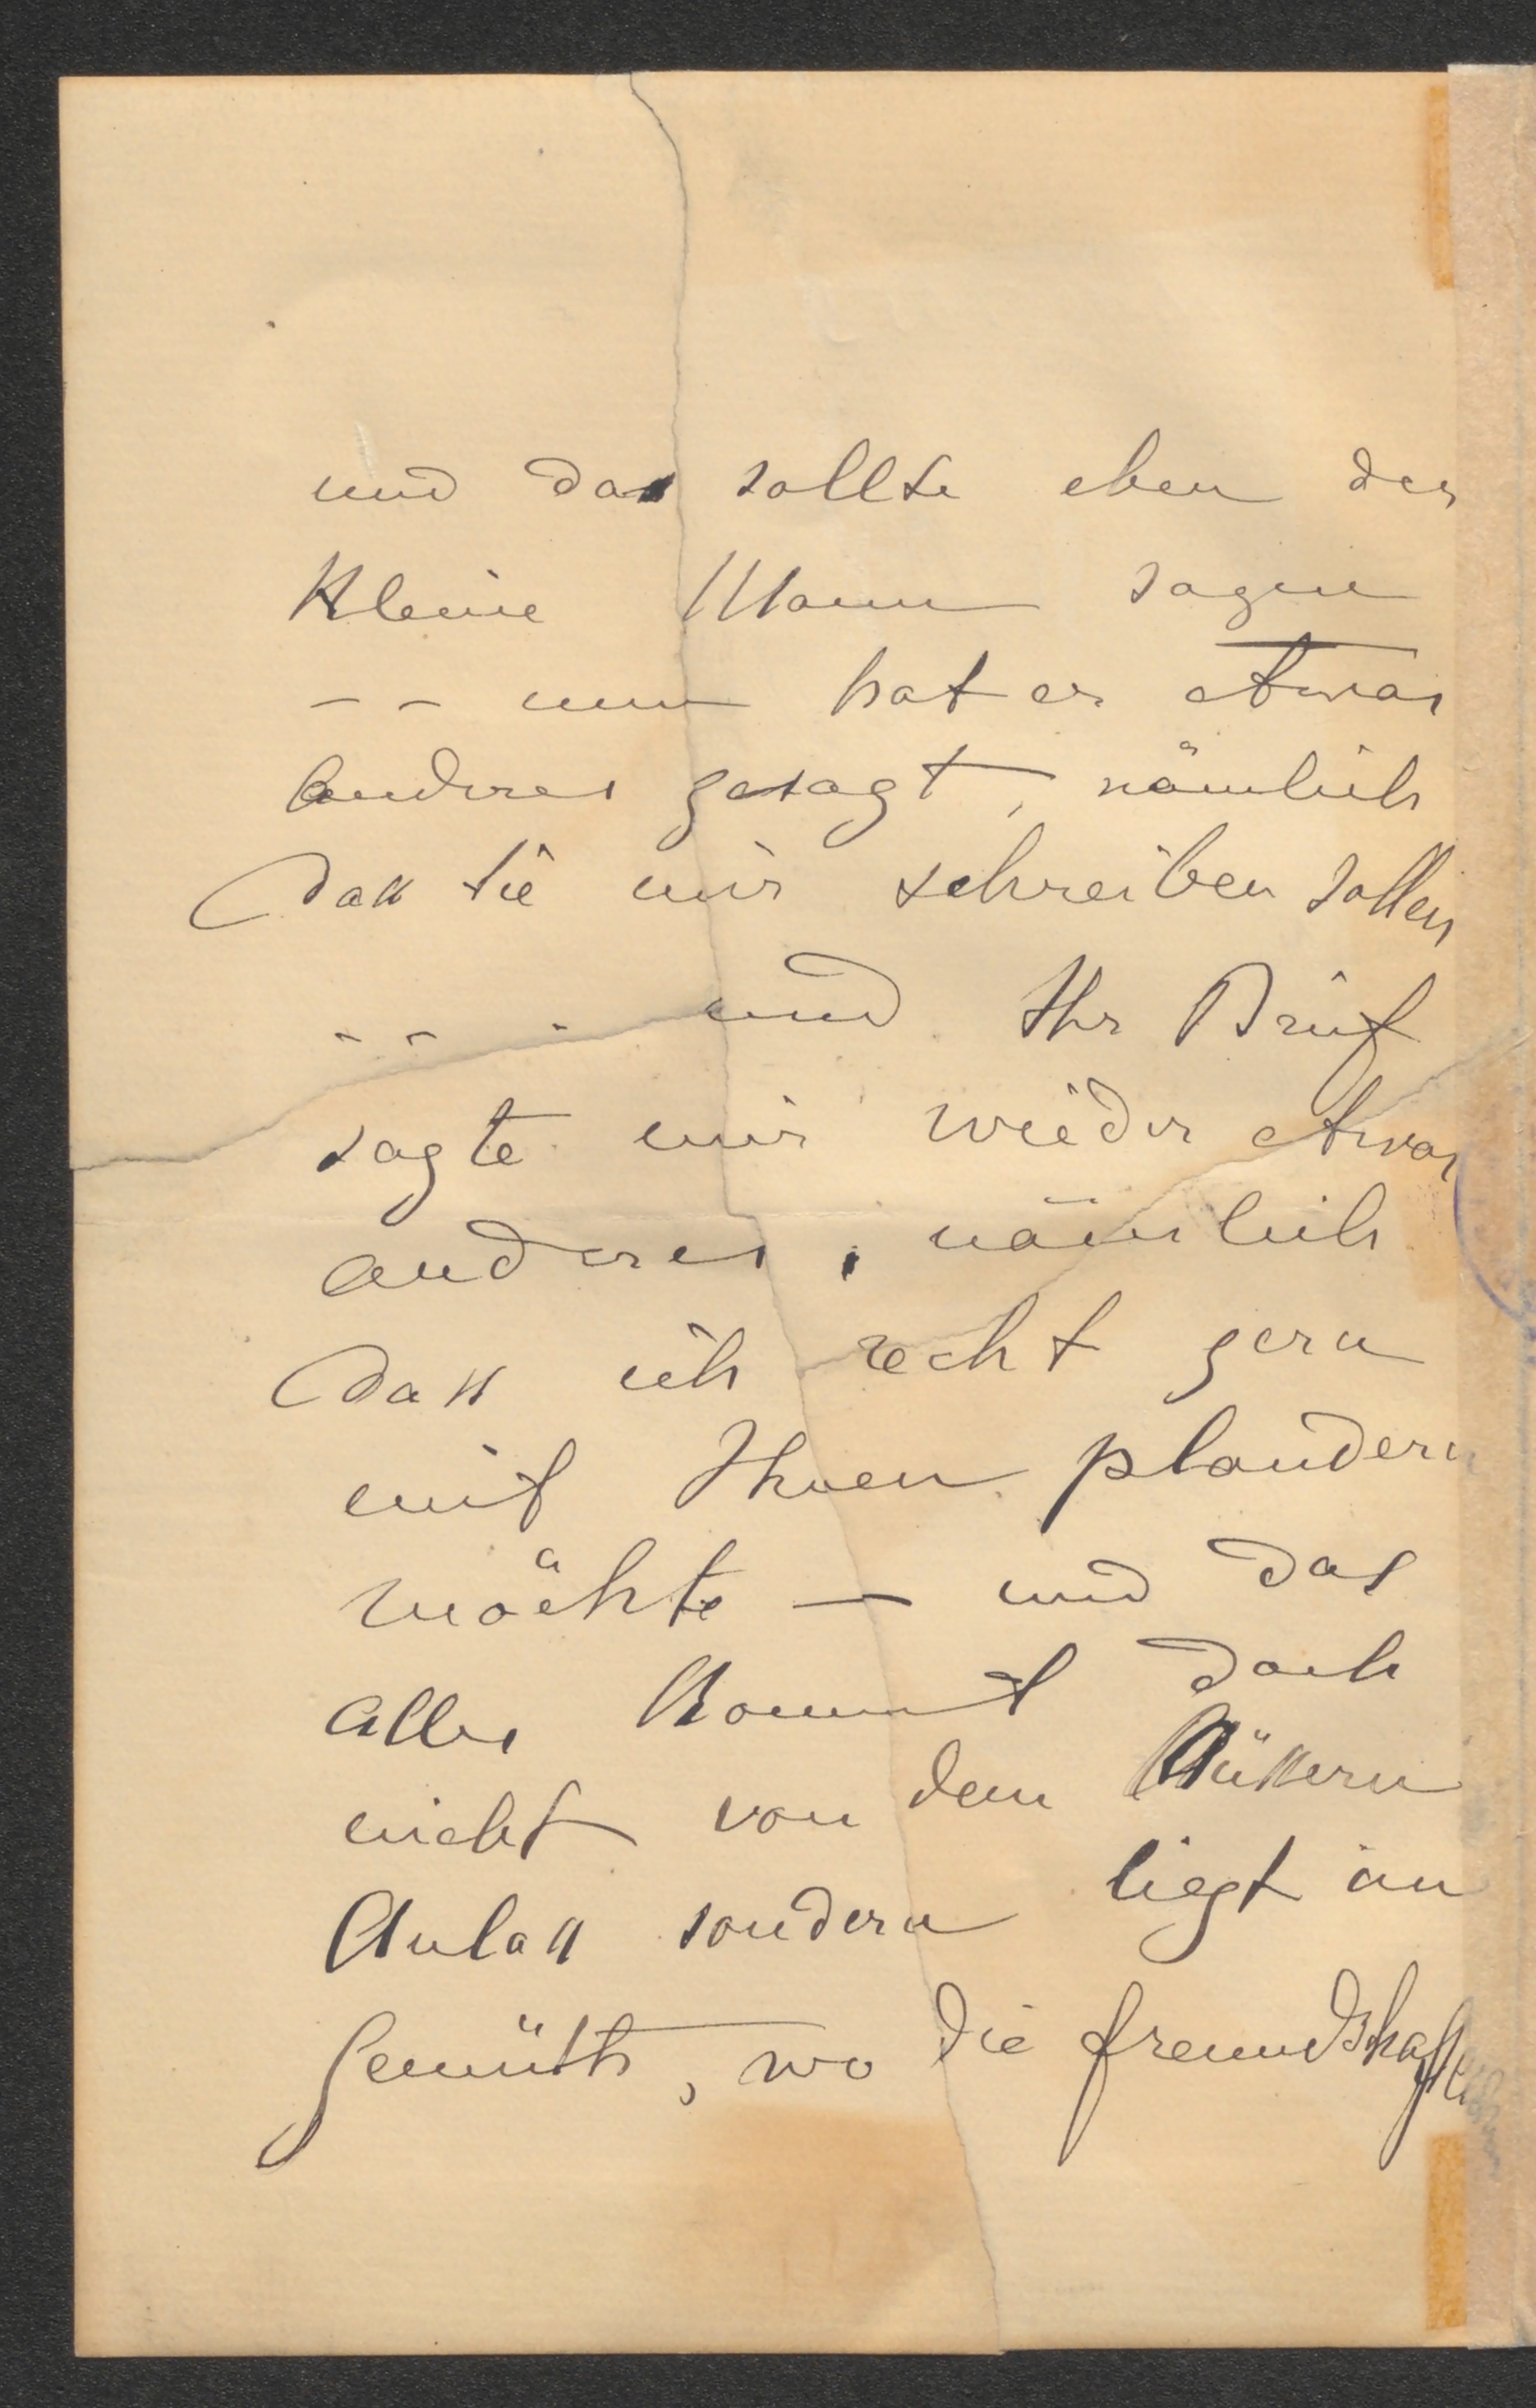 und das sollte eben der
Kleine Mann sagen
-- nun hat er etwas
anderes gesagt, nämlich
dass Sie mir schreiben sollen
-- - und Ihr Brief
sagte mir wieder etwas
anderes, nämlich
dass ich recht gern
mit Ihnen plaudern
möchte — und das
alles kommt doch
nicht von dem äussern
Anlass sondern liegt im
Gemüth, wo die